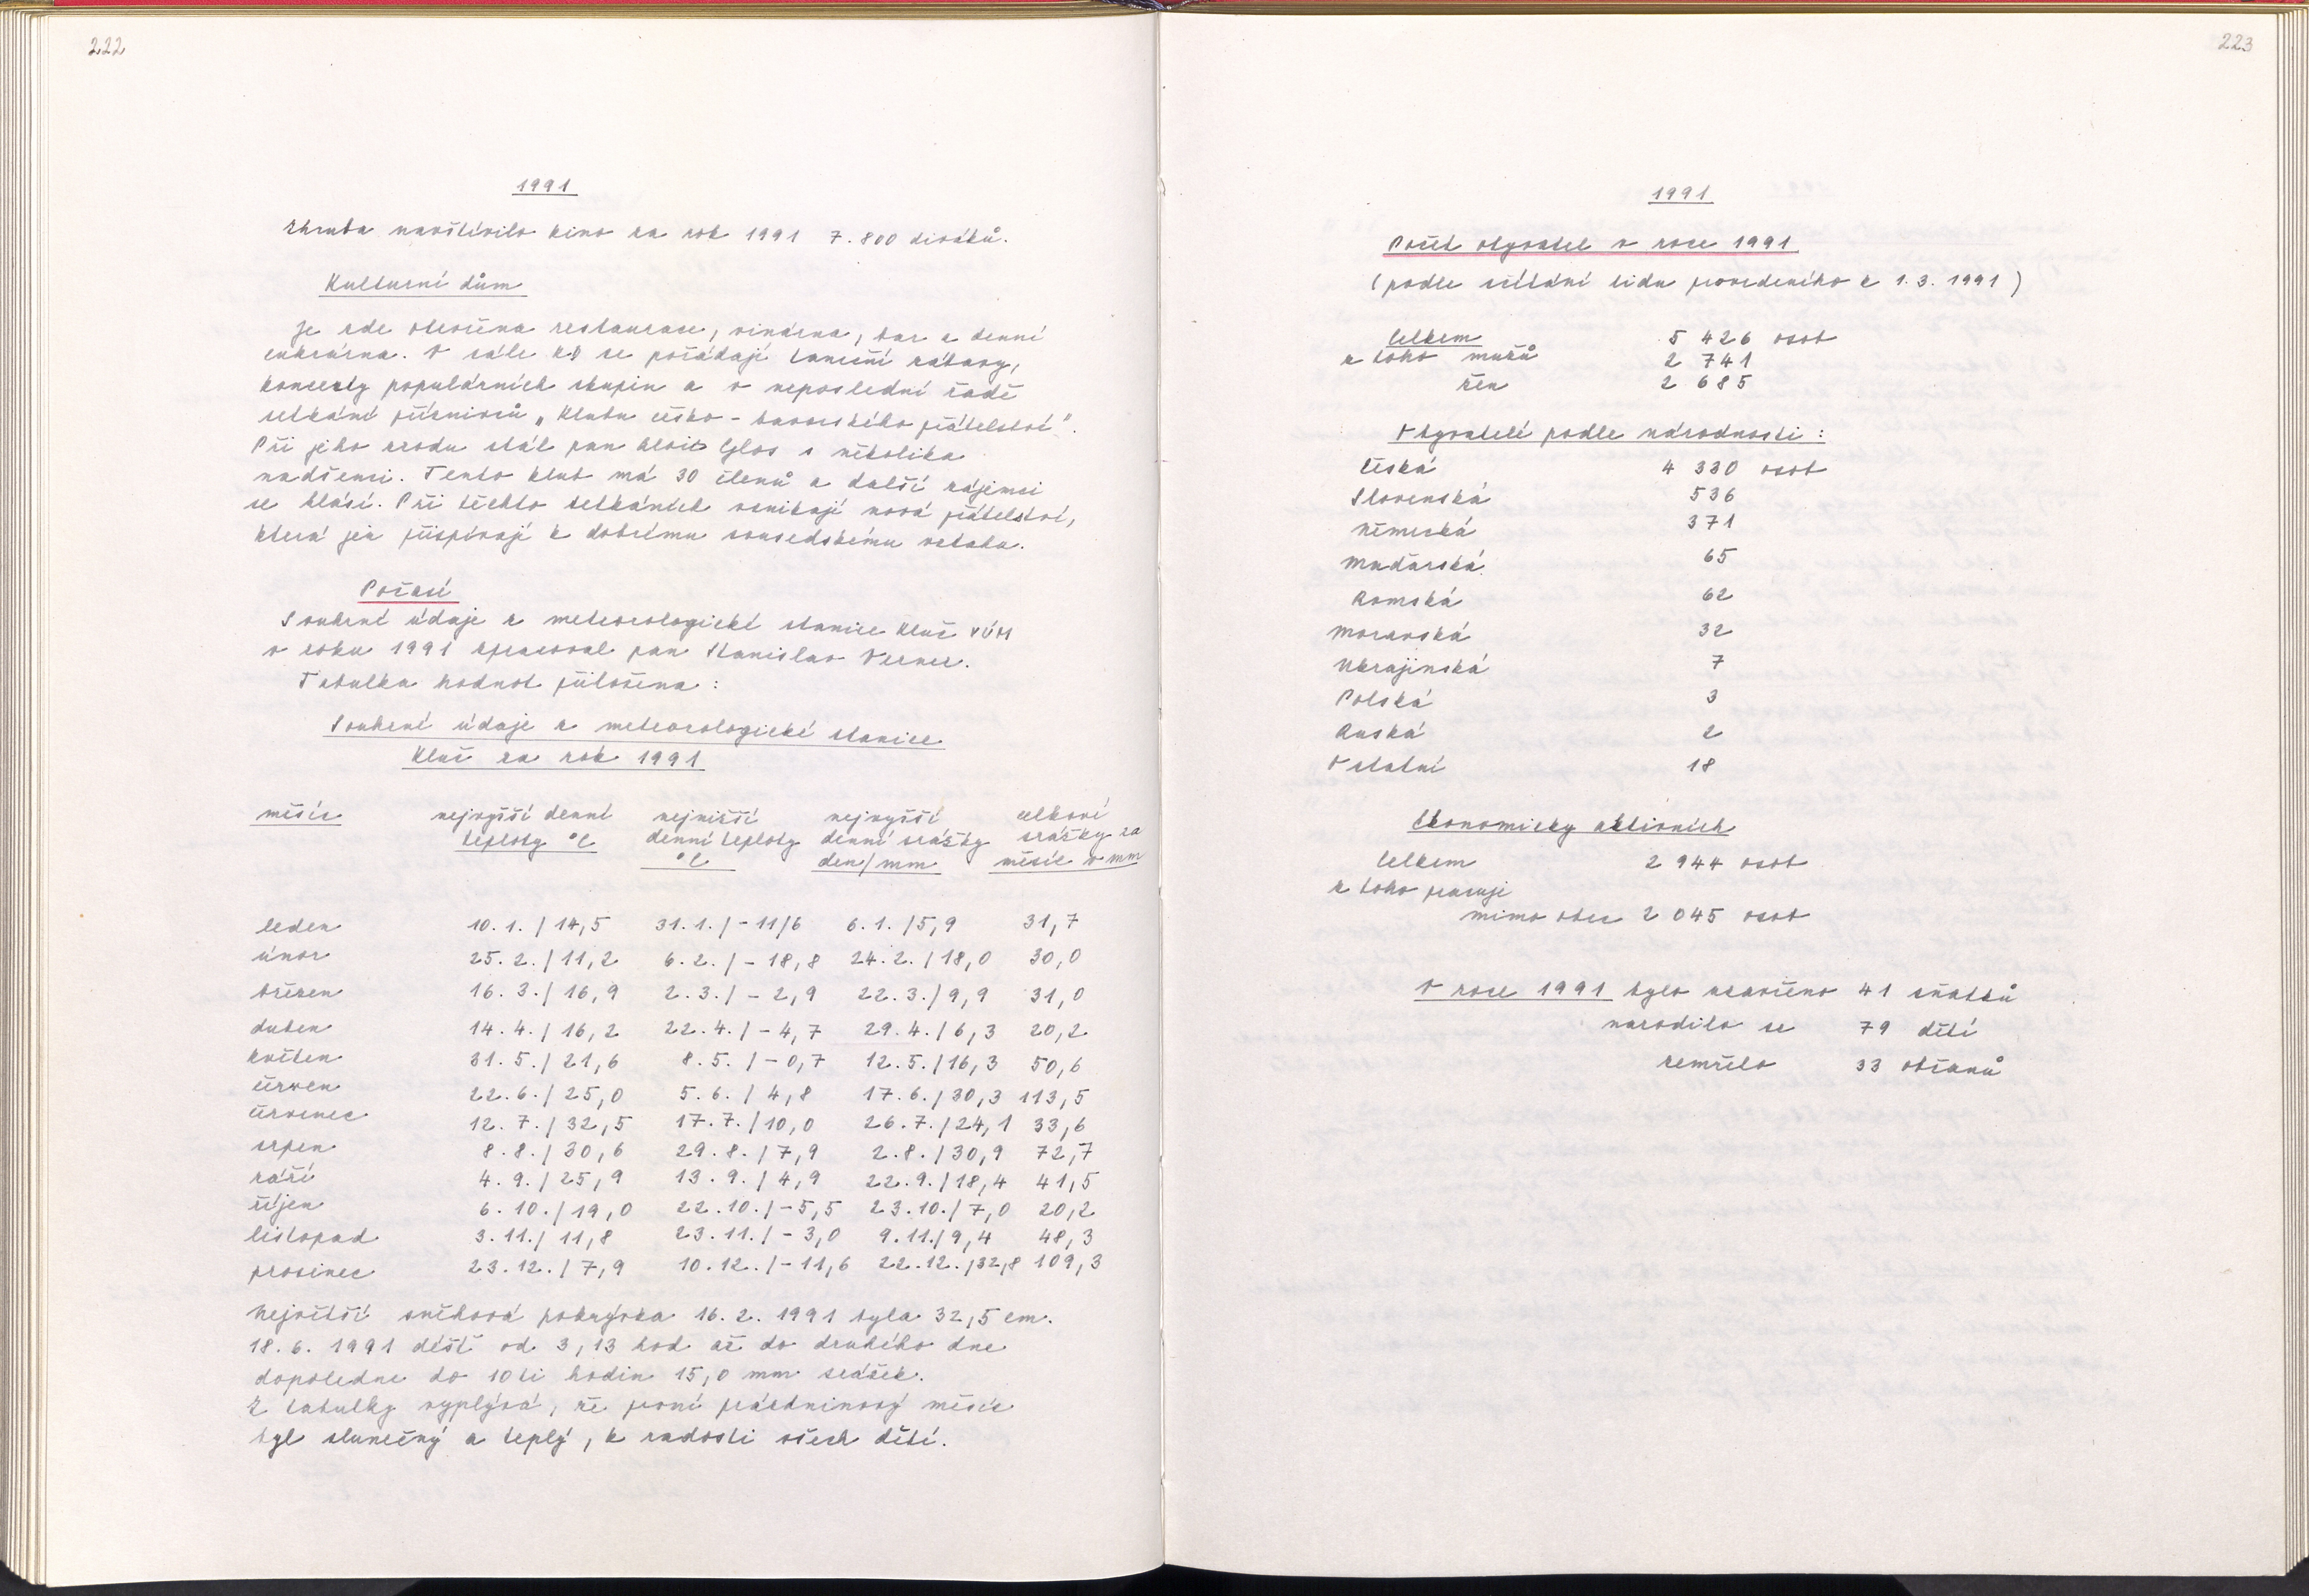 222
1991
Zhruba navštívilo kino za rok 1991 7.800 diváků.
Kulturní dům
Je zde otevřena restaurace, vinárna, bar a denní
cukrárna. V sále KD se pořádají taneční zábavy,
koncerty populárních skupin a v neposlední řadě
setkání příznivců „Klubu česko-bavorského přátelství".
Při jeho zrodu stál pan Alois Glos s několika
nadšenci. Tento klub má 30 členů a další zájemci
se hlásí. Při těchto setkáních vznikají nová přátelství,
která jen přispívají k dobrému sousedskému vztahu.
Počasí
Souhrné údaje z meteorologické stanice Kluč VÚM
v roku 1991 zpracoval pan Stanislav Verner.
Tabulka hodnot přiložena:
Souhrné údaje z meteorologické stanice
Kluč za rok 1991
měsíc nejvyšší denní nejnižší nejvyšší celkové
teploty °C denní teploty denní srážky srážky za
°C den/mm měsíc v mm
leden 10.1./14,5 31.1./-11/6 6.1./5,9 31,7
únor 25.2./11,2 6.2./-18,8 24.2./18,0 30,0
březen 16.3./16,9 2.3./-2,9 22.3./9,9 31,0
duben 14.4./16,2 22.4./-4,7 29.4./6,3 20,2
květen 31.5./21,6 8.5./-0,7 12.5./16,3 50,6
červen 22.6./25,0 5.6./4,8 17.6./30,3 113,5
červenec 12.7./32,5 17.7./10,0 26.7./24,1 33,6
srpen 8.8./30,6 29.8./7,9 2.8./30,9 72,7
září 4.9./25,9 13.9./4,9 22.9./18,4 41,5
říjen 6.10./19,0 22.10./-5,5 23.10./7,0 20,2
listopad 3.11./11,8 23.11./-3,0 9.11./9,4 48,3
prosinec 23.12./7,9 10.12./-11,6 22.12./32,8 109,3
Největší sněhová pokrývka 16.2. 1991 byla 32,5 cm.
18.6. 1991 déšť od 3,13 hod až do druhého dne
dopoledne do 10ti hodin 15,0 mm srážek.
Z tabulky vyplývá, že první prázdninový měsíc
byl slunečný a teplý, k radosti všech dětí.
223
1991
Počet obyvatel v roce 1991
(podle sčítání lidu provedeného k 1.3. 1991)
Celkem 5 426 osob
z toho mužů 2 741
žen 2 685
Obyvatelé podle národnosti:
Česká 4 330 osob
Slovenská 536
Německá 371
Maďarská 65
Romská 62
Moravská 32
Ukrajinská 7
Polská 3
Ruská 2
Ostatní 18
Ekonomicky aktivních
Celkem 2 944 osob
z toho pracuje
mimo obec 2 045 osob
V roce 1991 bylo uzavřeno 41 sňatků
narodilo se 79 dětí
zemřelo 33 občanů